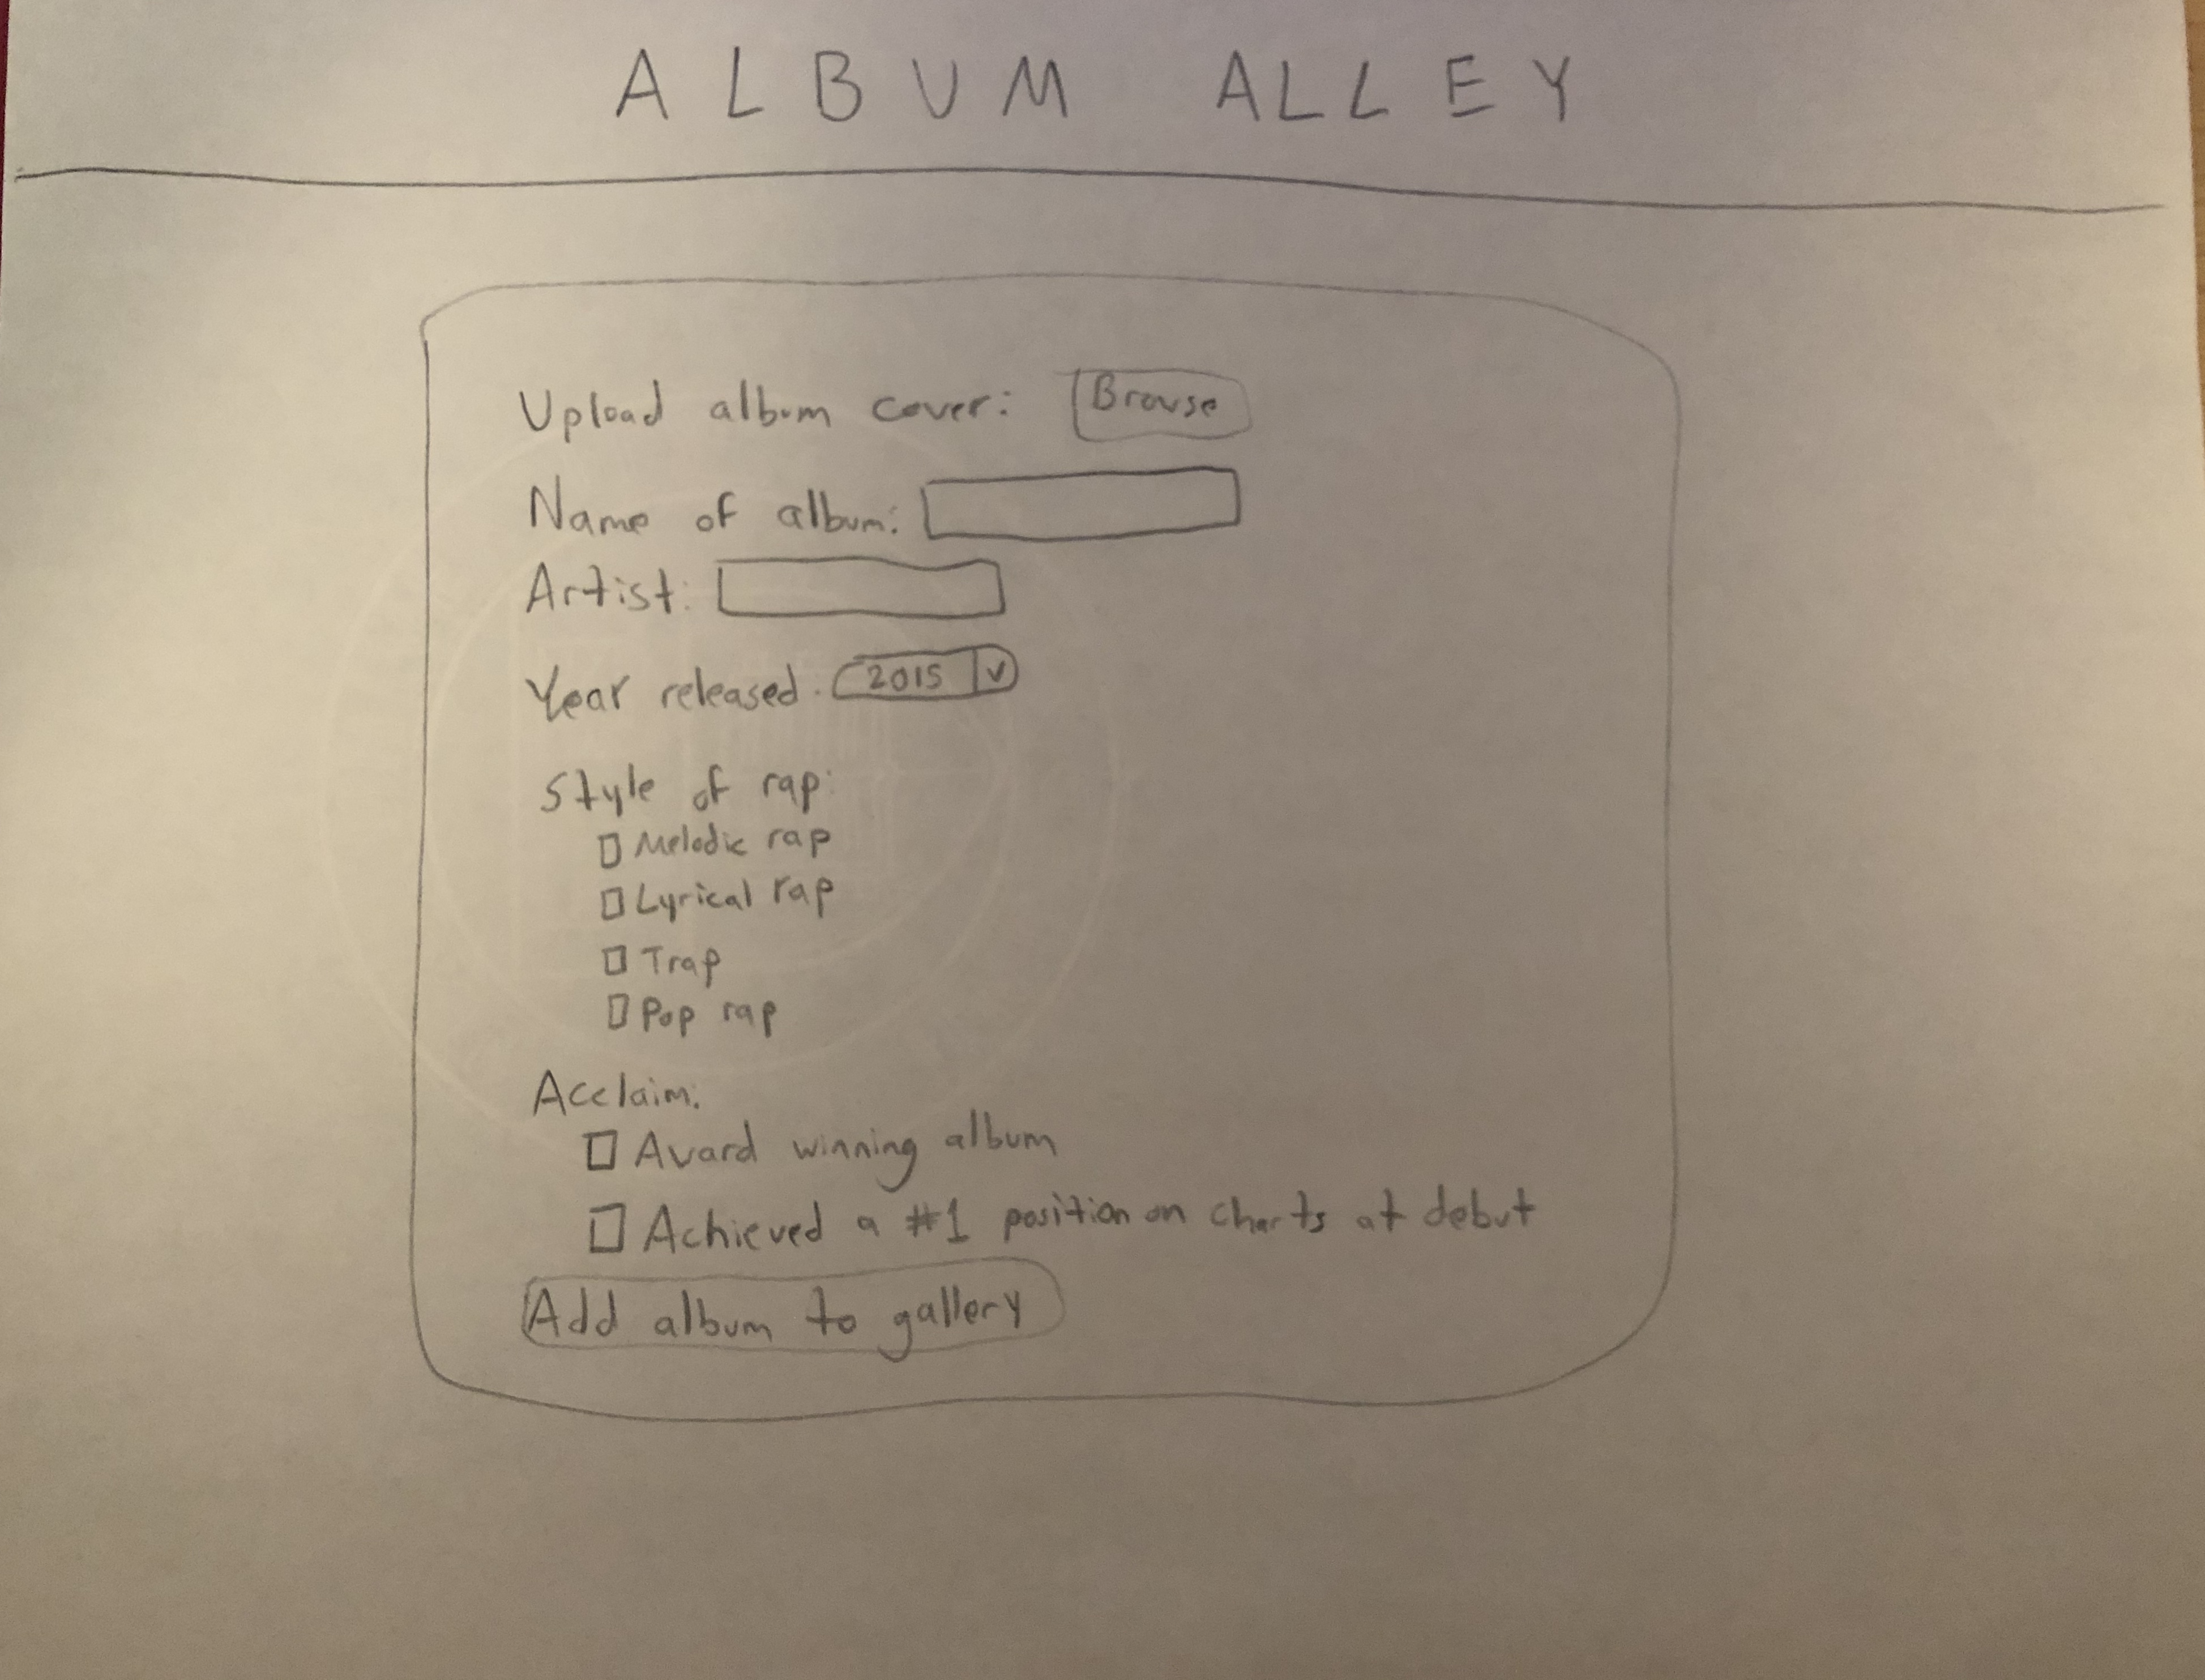 ALBUM ALLEY
Upload album cover: Browse
Name of album:
Artist:
Year released: 2015 v
Style of rap:
Melodic rap
Lyrical rap
Trap
Pop rap
Acclaim:
Award winning album
Achieved a #1 position on charts at debut
Add album to gallery